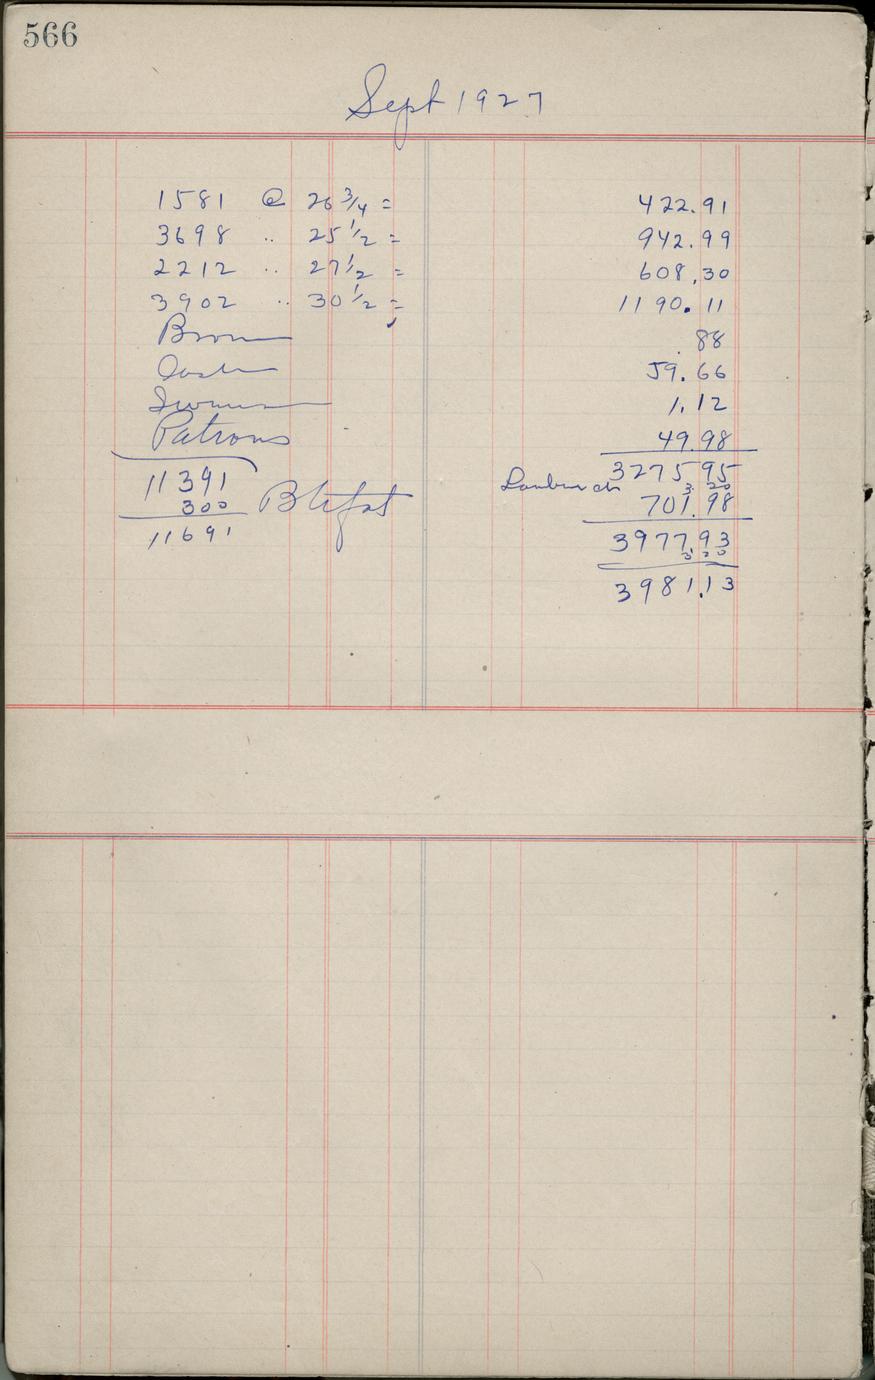 566
Sept 1927
1581 @ 26 3/4 = 422.91
3698 .. 25 1/2 = 942.99
2212 .. 27 1/2 = 608.30
3902 .. 30 1/2 = 1190.11
Brown .88
Cash 59.66
1.12
Patrons 49.98
11391 3275 95
3.20
300 B 701.98
11691 3977.93
3 20
3981.13